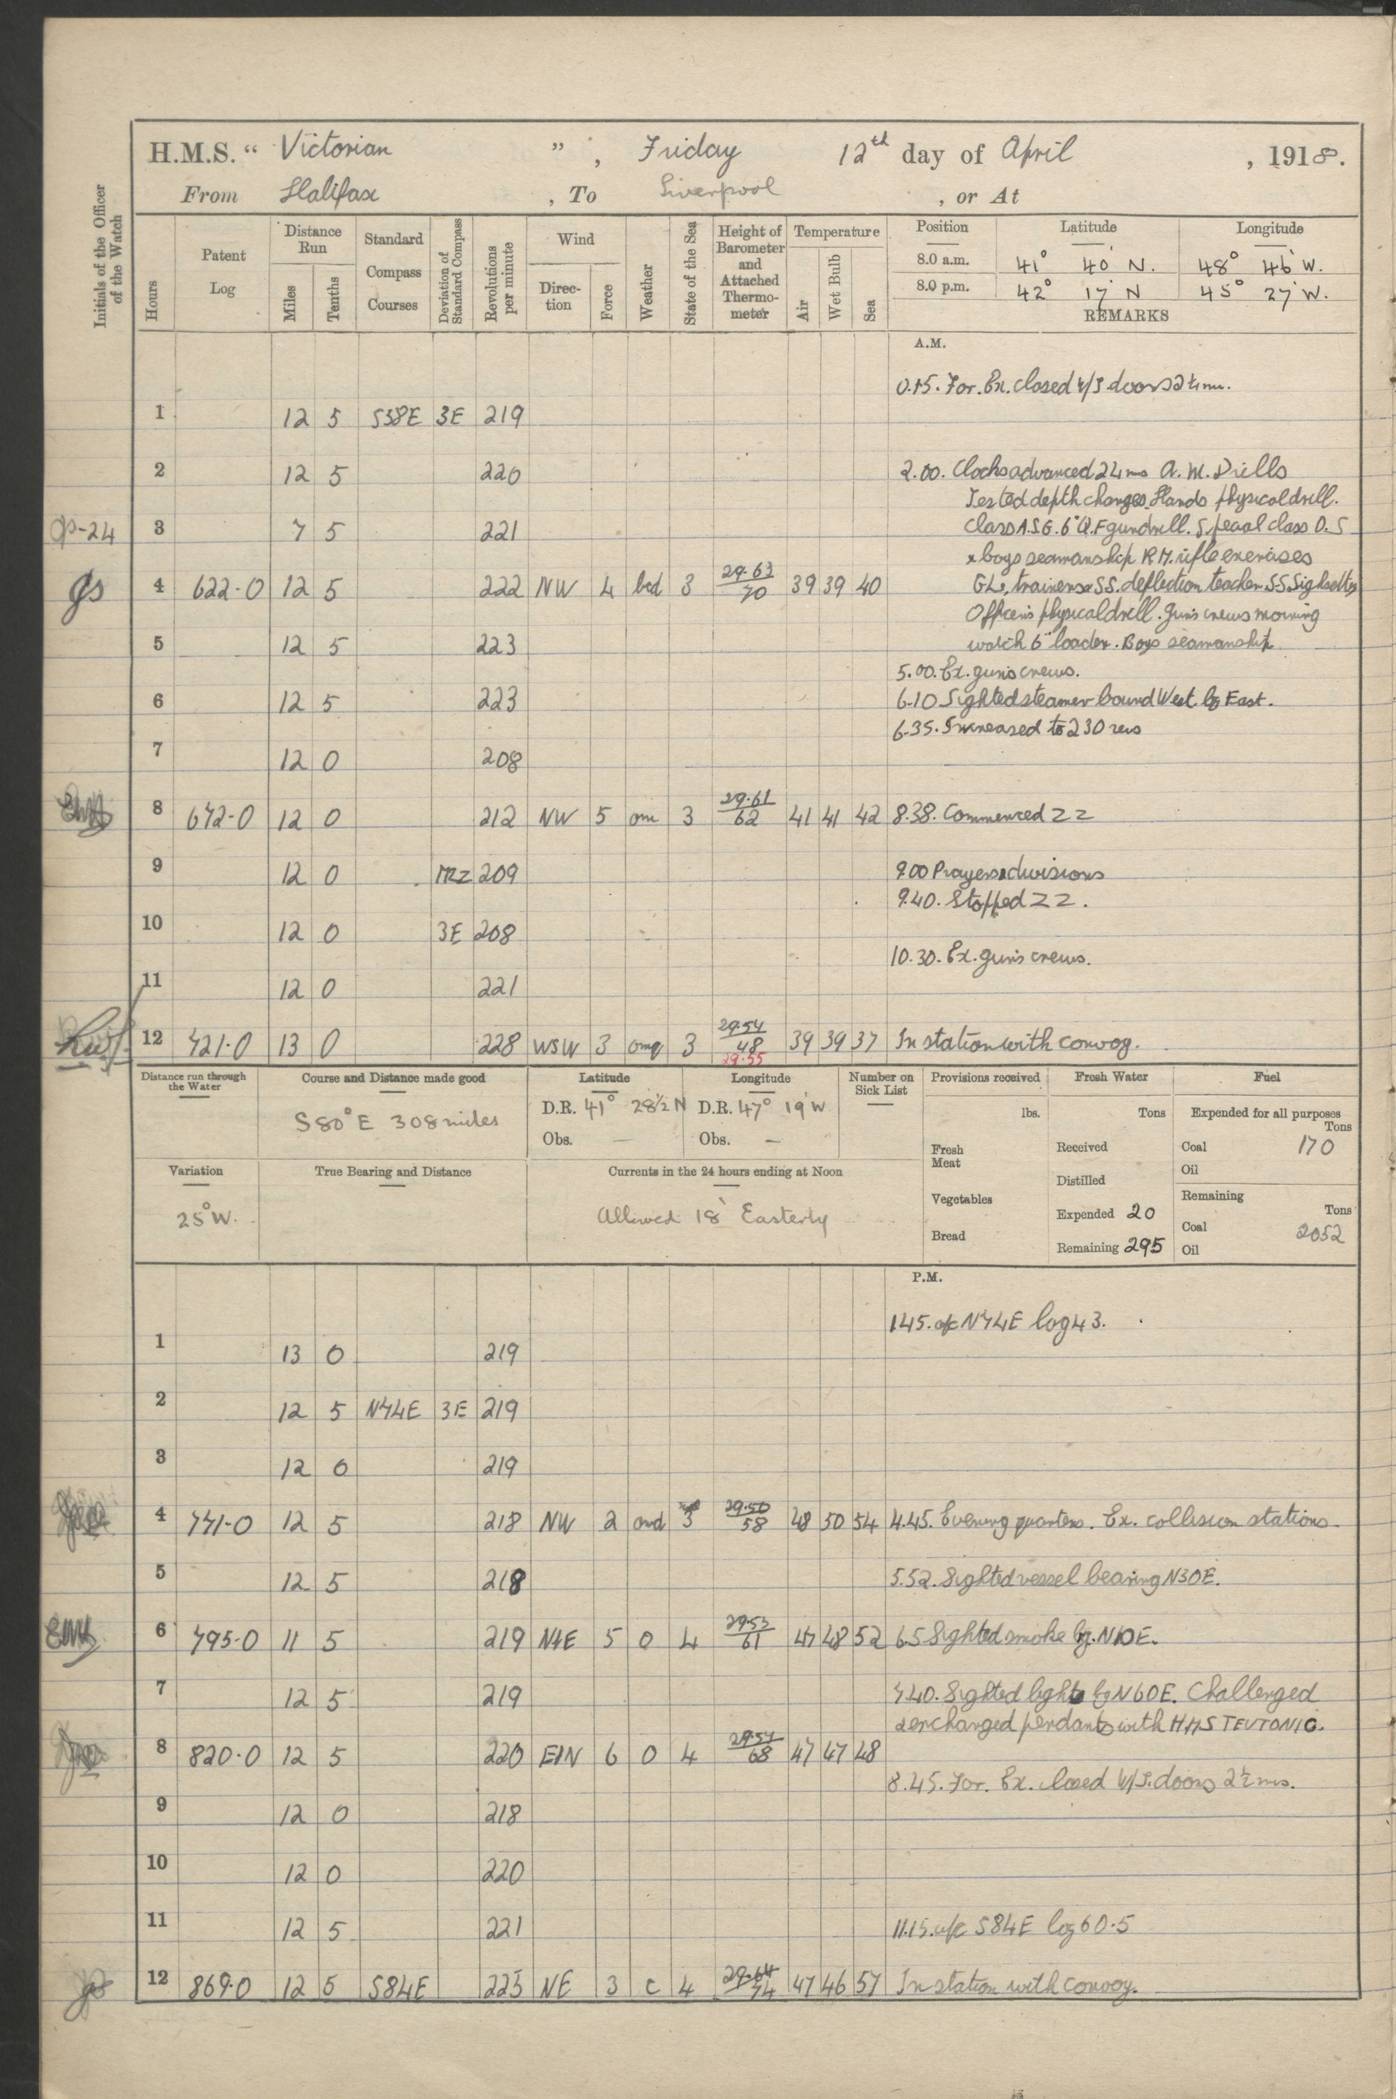 H.M.S. " Victorian ", Friday 12th day of April, 1918.
From Halifax, To Liverpool, or At
Initials of the Officer of the Watch
Hours
Patent Log
Distance Run
Miles
Tenths
Standard Compass Courses
Deviation of Standard Compass
Revolutions per minute
Wind
Direction
Force
Weather
State of the Sea
Height of Barometer and Attached Thermometer
Temperature
Air
Wet Bulb
Sea
Position Latitude Longitude
8.0 a.m. 41° 40' N. 48° 46' W.
8.0 p.m. 42° 17' N 45° 27' W.
REMARKS
A.M.
0.15. For. Ex. closed W/T doors 2½ms.
1 12 5 S58E 3E 219
2 12 5 220 2.00. Clocks advanced 24ms A.M. Drills
Tested depth charges. Hands physical drill.
3 7 5 221 class A.S.G. 6" Q.F gundrill. Special class O.S
& boys seamanship R.M. rifle exercises
4 622·0 12 5 222 NW 4 bcd 3 29·63 70 39 39 40 GLs, trainers & SS. deflection teacher SS Sightsetters
Officers physical drill. guns crews morning
5 12 5 223 watch 6" loader. Boys seamanship
5.00. Ex. guns crews.
6 12 5 223 6.10 Sighted steamer bound West bg East.
6.35. Increased to 230 revs
7 12 0 208
8 672·0 12 0 212 NW 5 om 3 29·61 62 41 41 42 8.38. Commenced ZZ
9 12 0 209 9.00 Prayers & divisions
9.40. Stopped ZZ.
10 12 0 3E 208
10.30. Ex. guns crews.
11 12 0 221
12 721·0 13 0 228 WSW 3 omq 3 29·54 48 29·55 39 39 37 In station with convoy.
Distance run through the Water
Course and Distance made good
S80°E 308 miles
Latitude
D.R. 41° 28½ N
Obs. —
Longitude
D.R. 47° 19' W
Obs. —
Number on Sick List
Provisions received
lbs.
Fresh Meat
Vegetables
Bread
Fresh Water
Tons
Received
Distilled
Expended 20
Remaining 295
Fuel
Expended for all purposes
Tons
Coal 170
Oil
Remaining
Tons
Coal 2052
Oil
Variation
25°W.
True Bearing and Distance
Currents in the 24 hours ending at Noon
Allowed 18' Easterly
P.M.
1.45. a/c N74E log 43.
1 13 0 219
2 12 5 N74E 3E 219
3 12 0 219
4 771·0 12 5 218 NW 2 omd 3 29·50 58 48 50 54 4.45. Evening quarters. Ex. collision stations.
5 12 5 218 5.52. Sighted vessel bearing N30E.
6 795·0 11 5 219 5 0 4 29·53 61 47 48 52 6.5 Sighted smoke bg. N10E.
7 12 5 219 7.40. Sighted light bg N60E. Challenged
& exchanged pendants with HMS TEUTONIC.
8 820·0 12 5 220 6 0 4 29·57 68 47 47 48
8.45. For. Ex. closed W/T. doors 2½ms.
9 12 0 218
10 12 0 220
11 12 5 221 11.15. a/c S84E log 60·5
12 869·0 12 5 S84E 223 NE 3 c 4 29·64 74 47 46 57 In station with convoy.